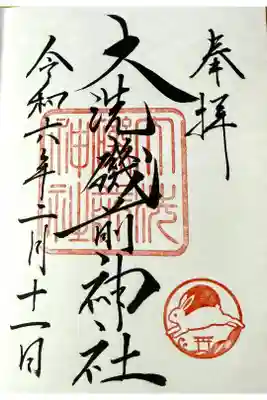 奉拝
大洗磯前神社
令和六年二月十一日